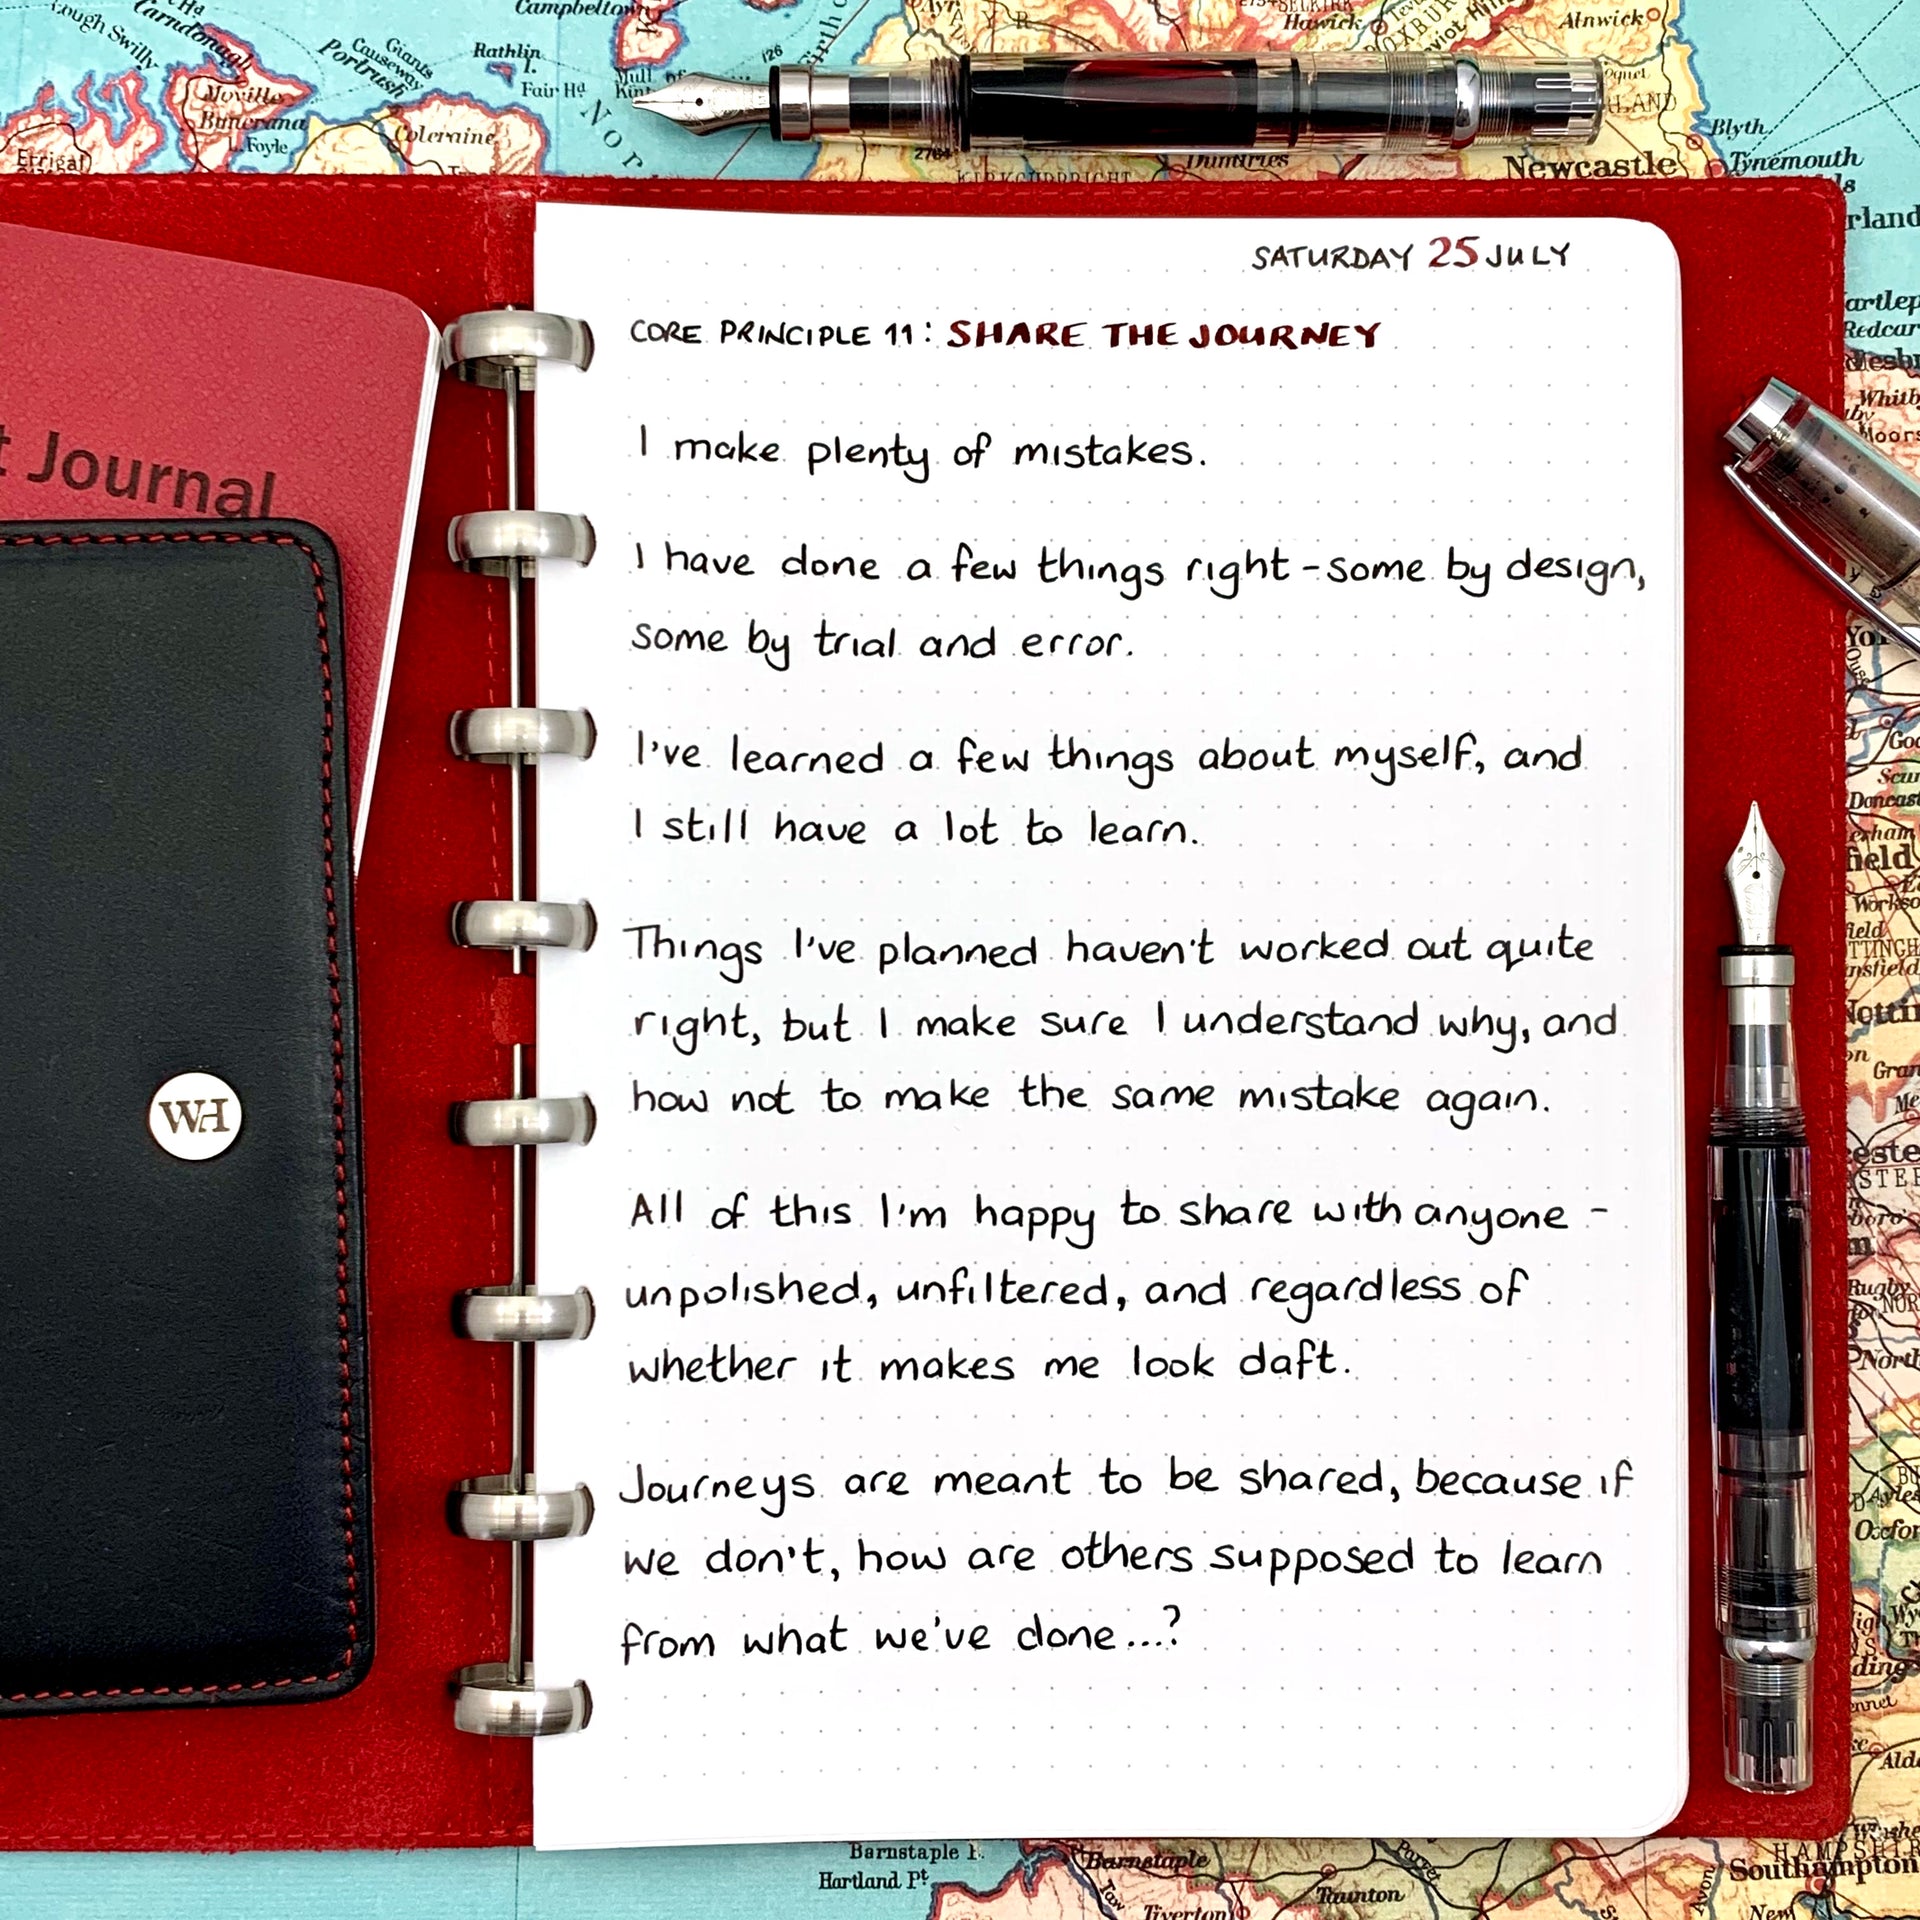 SATURDAY 25 JULY
CORE PRINCIPLE 11: SHARE THE JOURNEY
I make plenty of mistakes.
I have done a few things right - some by design,
some by trial and error.
I've learned a few things about myself, and
I still have a lot to learn.
Things I've planned haven't worked out quite
right, but I make sure I understand why, and
how not to make the same mistake again.
All of this I'm happy to share with anyone -
unpolished, unfiltered, and regardless of
whether it makes me look daft.
Journeys are meant to be shared, because if
we don't, how are others supposed to learn
from what we've done...?
Journal
WH
Campbeltown
Lough Swilly
Carndonagh
Giants
Causeway
Portrush
Rathlin
I.
Fair Hd
Mull of
Moville
Buncrana
L. Foyle
Coleraine
Errigal
Nor
126
Ayr
SELKIRK
Hawick
Alnwick
Blyth
Newcastle
Tynemouth
Dumfries
KIRKCUDBRIGHT
Redcar
Rugby
Barnstaple
Hartland Pt
Barnstaple
Taw
Tiverton
Taunton
Parret
Avon
Southampton
New